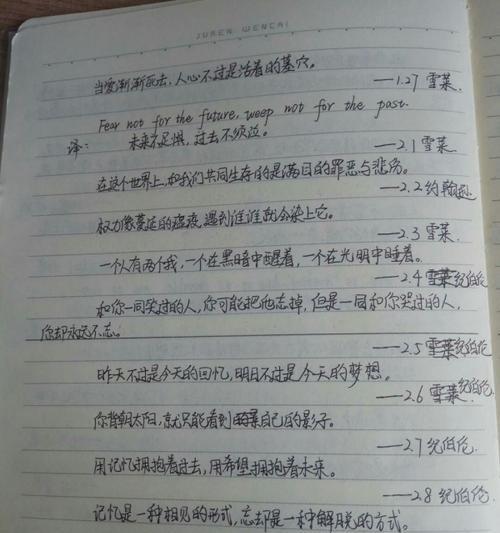 JUREN WENCAI
当爱渐渐死去,人心不过是活着的墓穴。
——1.27 雪莱.
Fear not for the future, weep not for the past.
译: 未来不足惧,过去不须泣。
——2.1 雪莱
在这个世界上,和我们共同生存的是满目的罪恶与悲伤。
——2.2 约翰逊
权力像蔓延的瘟疫,遇到谁谁就会染上它。
——2.3 雪莱.
一个人有两个我,一个在黑暗中醒着,一个在光明中睡着。
——2.4 雪莱纪伯伦
和你一同笑过的人,你可能把他忘掉,但是一同和你哭过的人,
你却永远不忘。
——2.5 雪莱纪伯伦
昨天不过是今天的回忆,明日不过是今天的梦想。
——2.6 雪莱纪伯伦
你背朝太阳,就只能看到自己的影子。
——2.7 纪伯伦
用记忆拥抱着过去,用希望拥抱着未来。
——2.8 纪伯伦
记忆是一种相见的形式,忘却是一种解脱的方式。